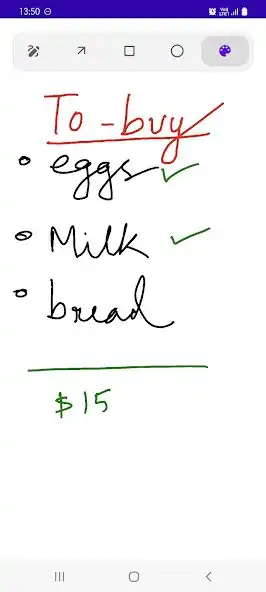 13:50
To-buy
eggs ✓
Milk ✓
bread
$15